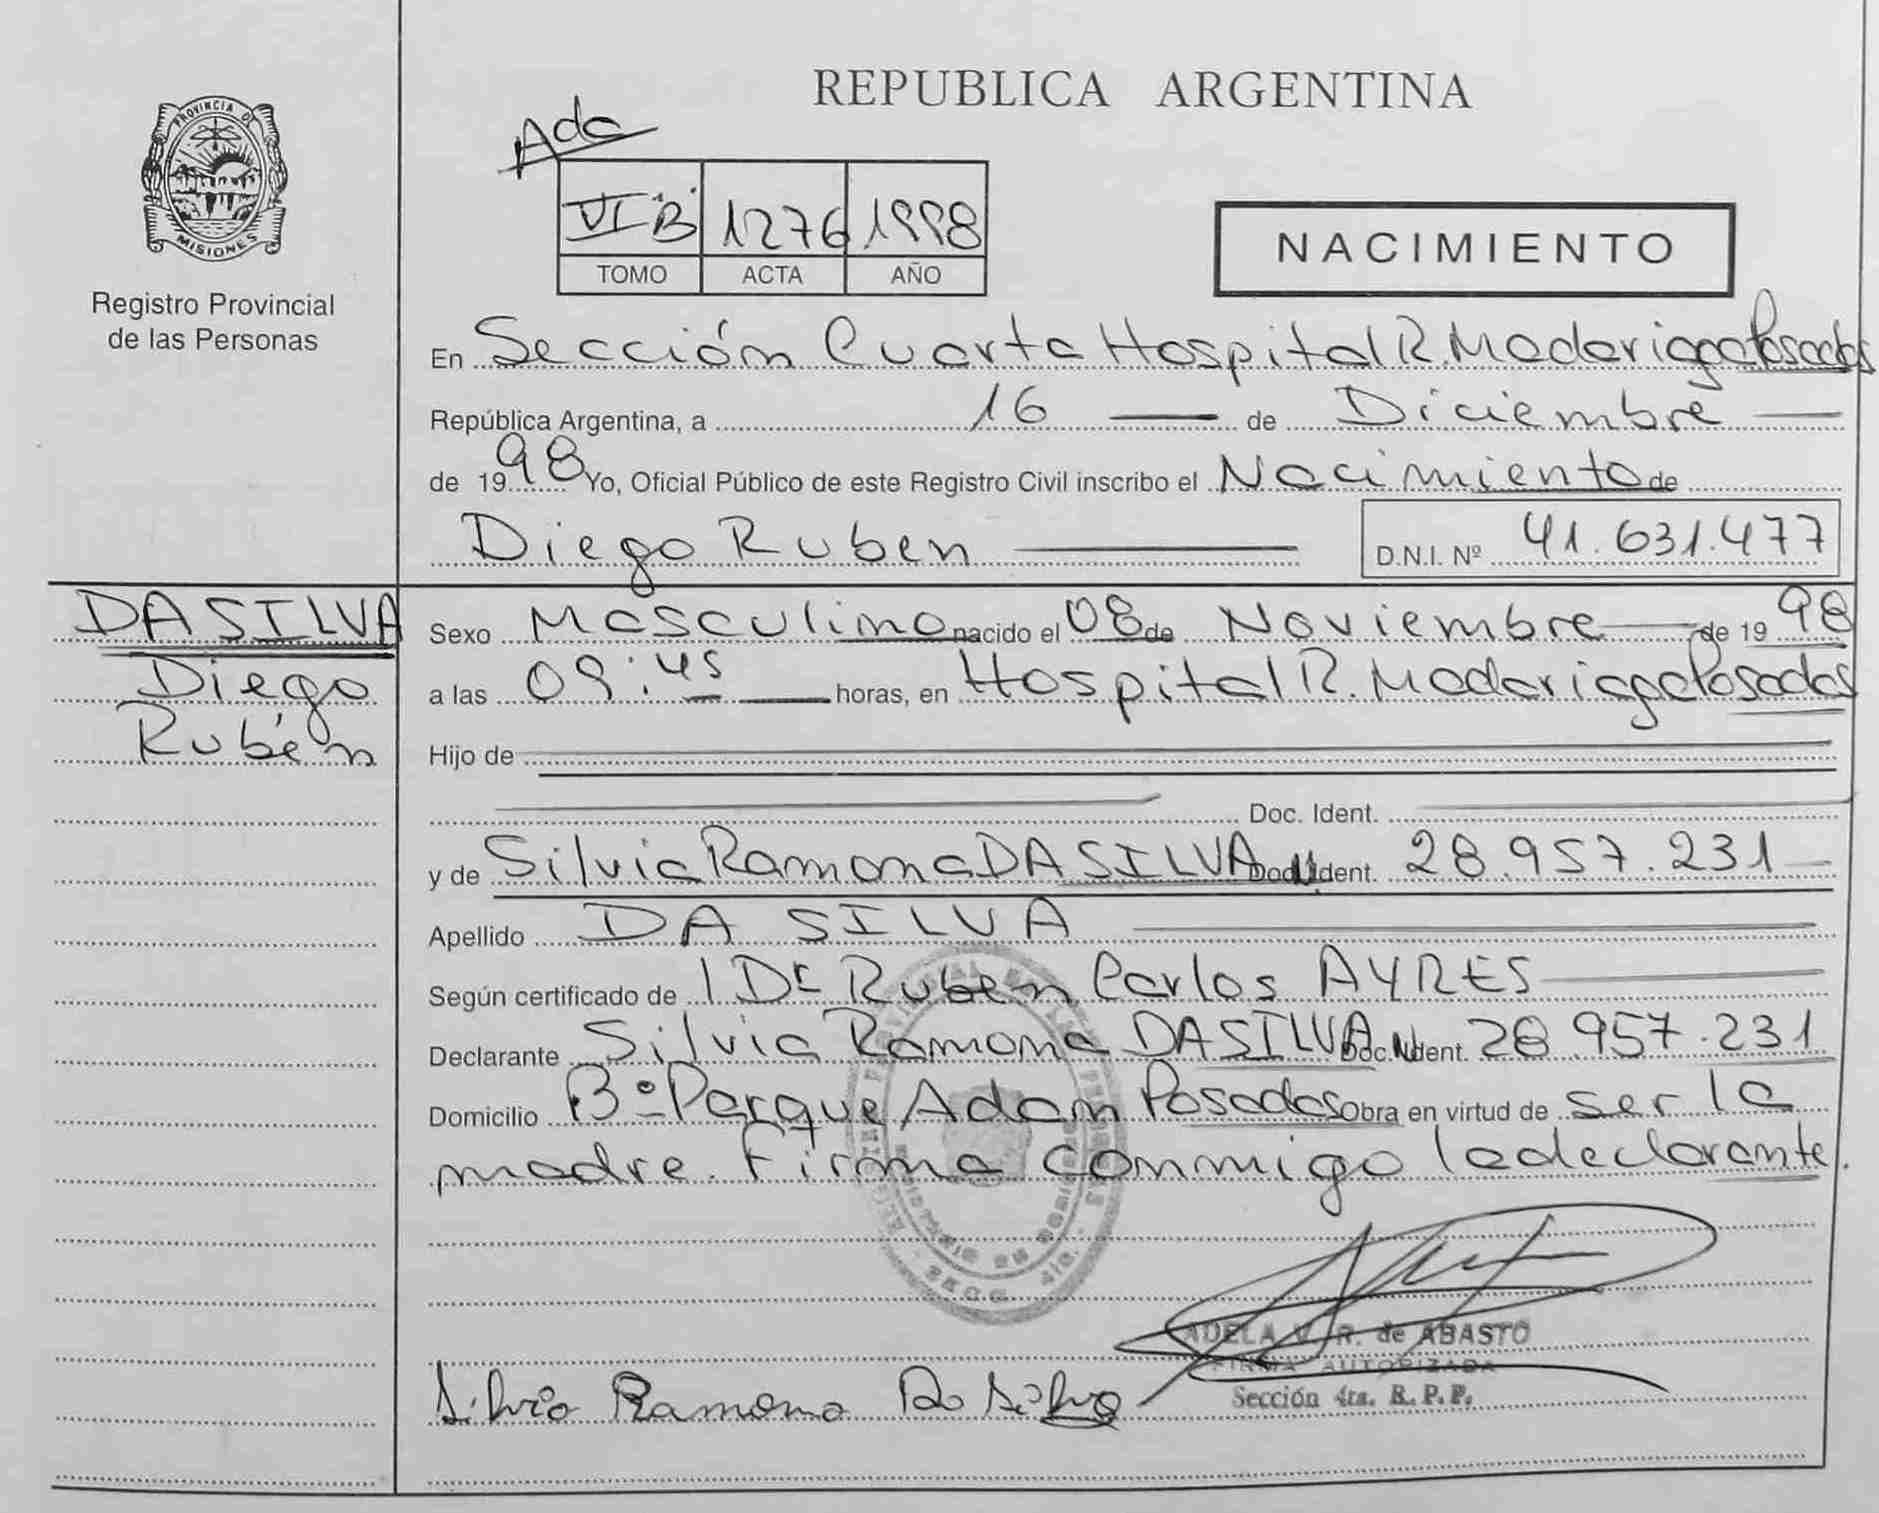 PROVINCIA DE
MISIONES
Registro Provincial
de las Personas
REPUBLICA ARGENTINA
Ada
VI "B" 1276 1998
TOMO ACTA AÑO
NACIMIENTO
En Sección Cuarta Hospital R. Madariaga Posadas
República Argentina, a 16 de Diciembre
de 1998 Yo, Oficial Público de este Registro Civil inscribo el Nacimiento de
Diego Ruben D.N.I. Nº 41.631.477
DA SILVA
Diego
Rubén
Sexo Masculino nacido el 08 de Noviembre de 1998
a las 09:45 horas, en Hospital R. Madariaga Posadas
Hijo de
Doc. Ident.
y de Silvia Ramona DA SILVA Doc. Ident. 28.957.231
Apellido DA SILVA
Según certificado de l Dr Ruben Carlos AYRES
Declarante Silvia Ramona DA SILVA Doc. Ident. 28.957.231
Domicilio Bº Parque Adam Posadas Obra en virtud de ser la
madre. Firma conmmigo la declarante.
ADELA V. R. de ABASTO
FIRMA AUTORIZADA
Sección 4ta. R. P. P.
Silvia Ramona Da Silva